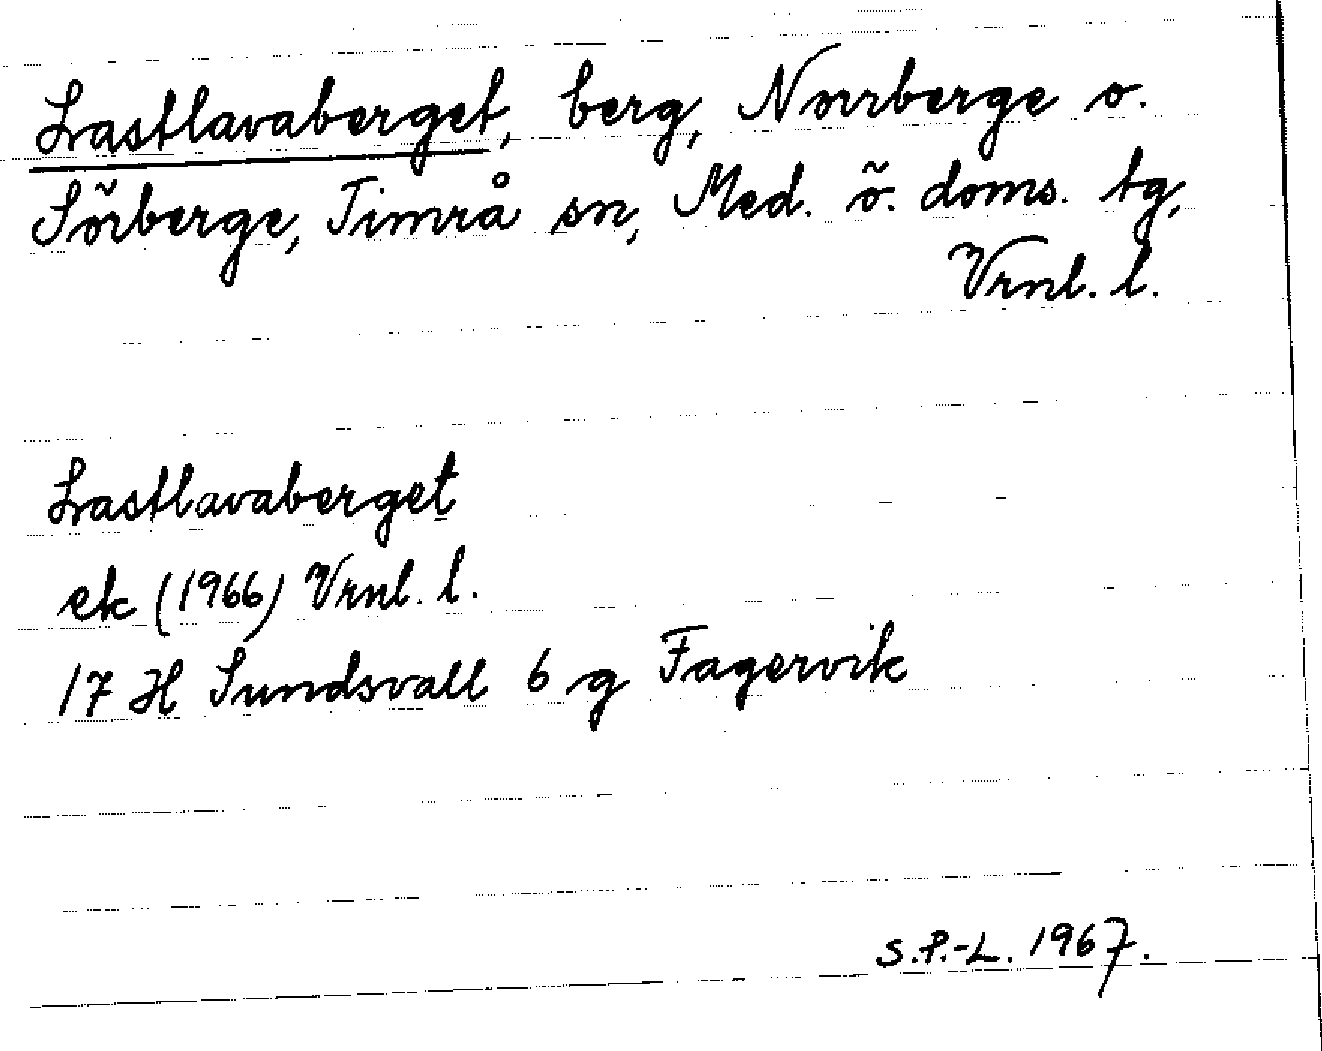 Lastlavaberget, berg, Norrberge o.
Sörberge, Timrå sn, Med. ö. doms. tg,
Vrnl. l.
Lastlavaberget
ek (1966) Vrnl. l.
17 H Sundsvall 6 g Fagervik
S.P.-L. 1967.